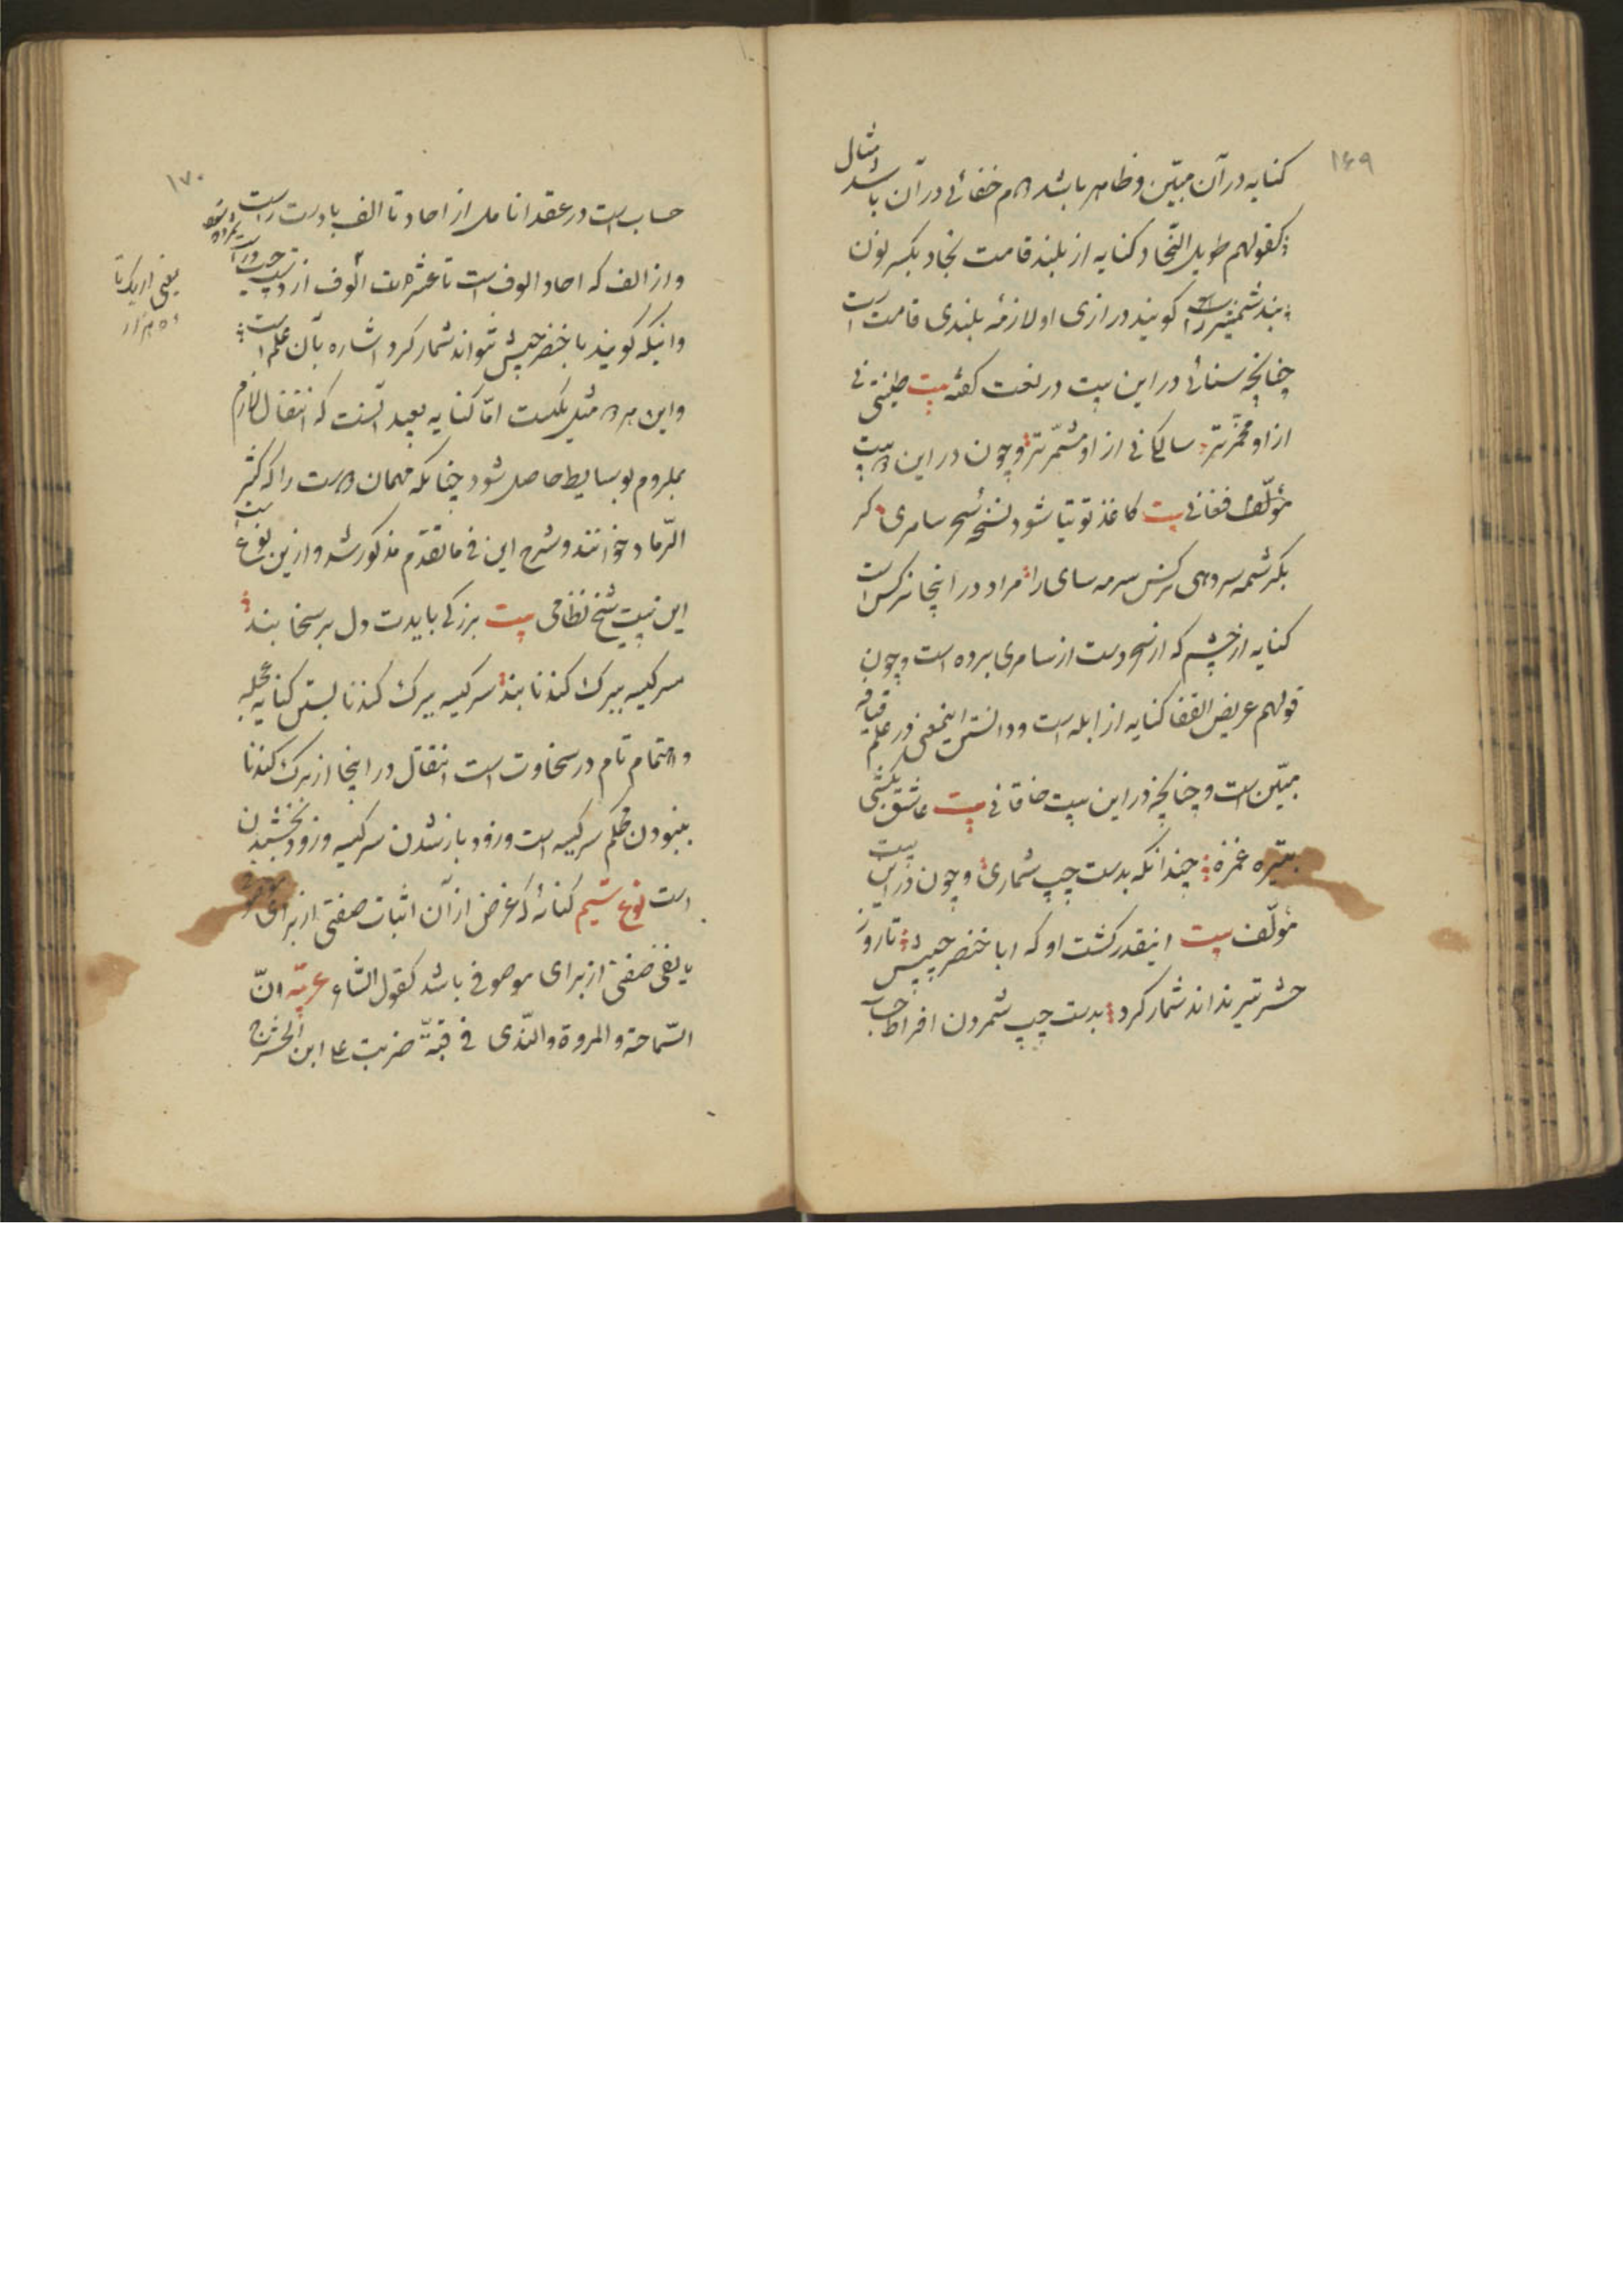 ۱۶۹
کنایه در آن مبیّن و ظاهر باشد و هم خفائی در آن باشد امثال
کقولهم طویل النّجاد کنایه از بلند قامت نجاد بکسر نون
بند شمشیر را گویند درازی او لازمهٔ بلندی قامت است
چنانچه سنائی در این بیت در نعت گفته بیت طینتی نی
از او مخمّرتر سالکانی از او مشمّرتر و چون در این بیت
مؤلّف فغانی بیت کاغذ توتیا شود نسخهٔ سحر سامری گر
بکرشمه سر دهی نرگس سرمه سای را مراد در اینجا نرگس است
کنایه از چشم که از سحر دست از سامری برده است و چون
قولهم عریض القفا کنایه از ابله است و دانستن اینمعنی در علم قیافه
مبیّن است و چنانچه در این بیت خاقانی بیت عاشق بکشی
بتیره غمزه چندانکه بدست چپ شماری و چون در این بیت
مؤلّف بیت اینقدر کشت او که ابا خنصر چپش تا روز
حشر تیر نداند شمار کرد بدست چپ شمردن افراط حساب
۱۷۰
حساب است در عقد انامل از احاد تا الف با دست راست
و از الف که احاد الوف است تا عشرهات الوف از دست چپ
و اینکه گویند با خنصر چپش نتواند شمار کرد اشاره بآن علم است
و این هر دو مثل یکست امّا کنایه بعید آنست که انتقال لازم
بملزوم بوسایط حاصل شود چنانکه مهمان دوست را که کثیر
الرّماد خوانند و شرح این فی ما تقدّم مذکور شد و ازین نوع است
این بیت شیخ نظامی بیت بزرگی بایدت دل بر سخا بند
سر کیسه ببرگ گندنا بند سر کیسه ببرگ گندنا بستن کنایه
و اهتمام تام در سخاوت است انتقال در اینجا از برگ گندنا
بنبودن محکم سر کیسه است و زود باز شدن سر کیسه و زود بخشیدن
است نوع سیّم کنایهٔ که غرض از آن اثبات صفتی از برای
یا نفی صفتی از برای موصوفی باشد کقول الشاعر عربیّه انّ
السّماحة و المروة و النّدی فی قبّة ضربت علی ابن الحشرج
یعنی از یک تا